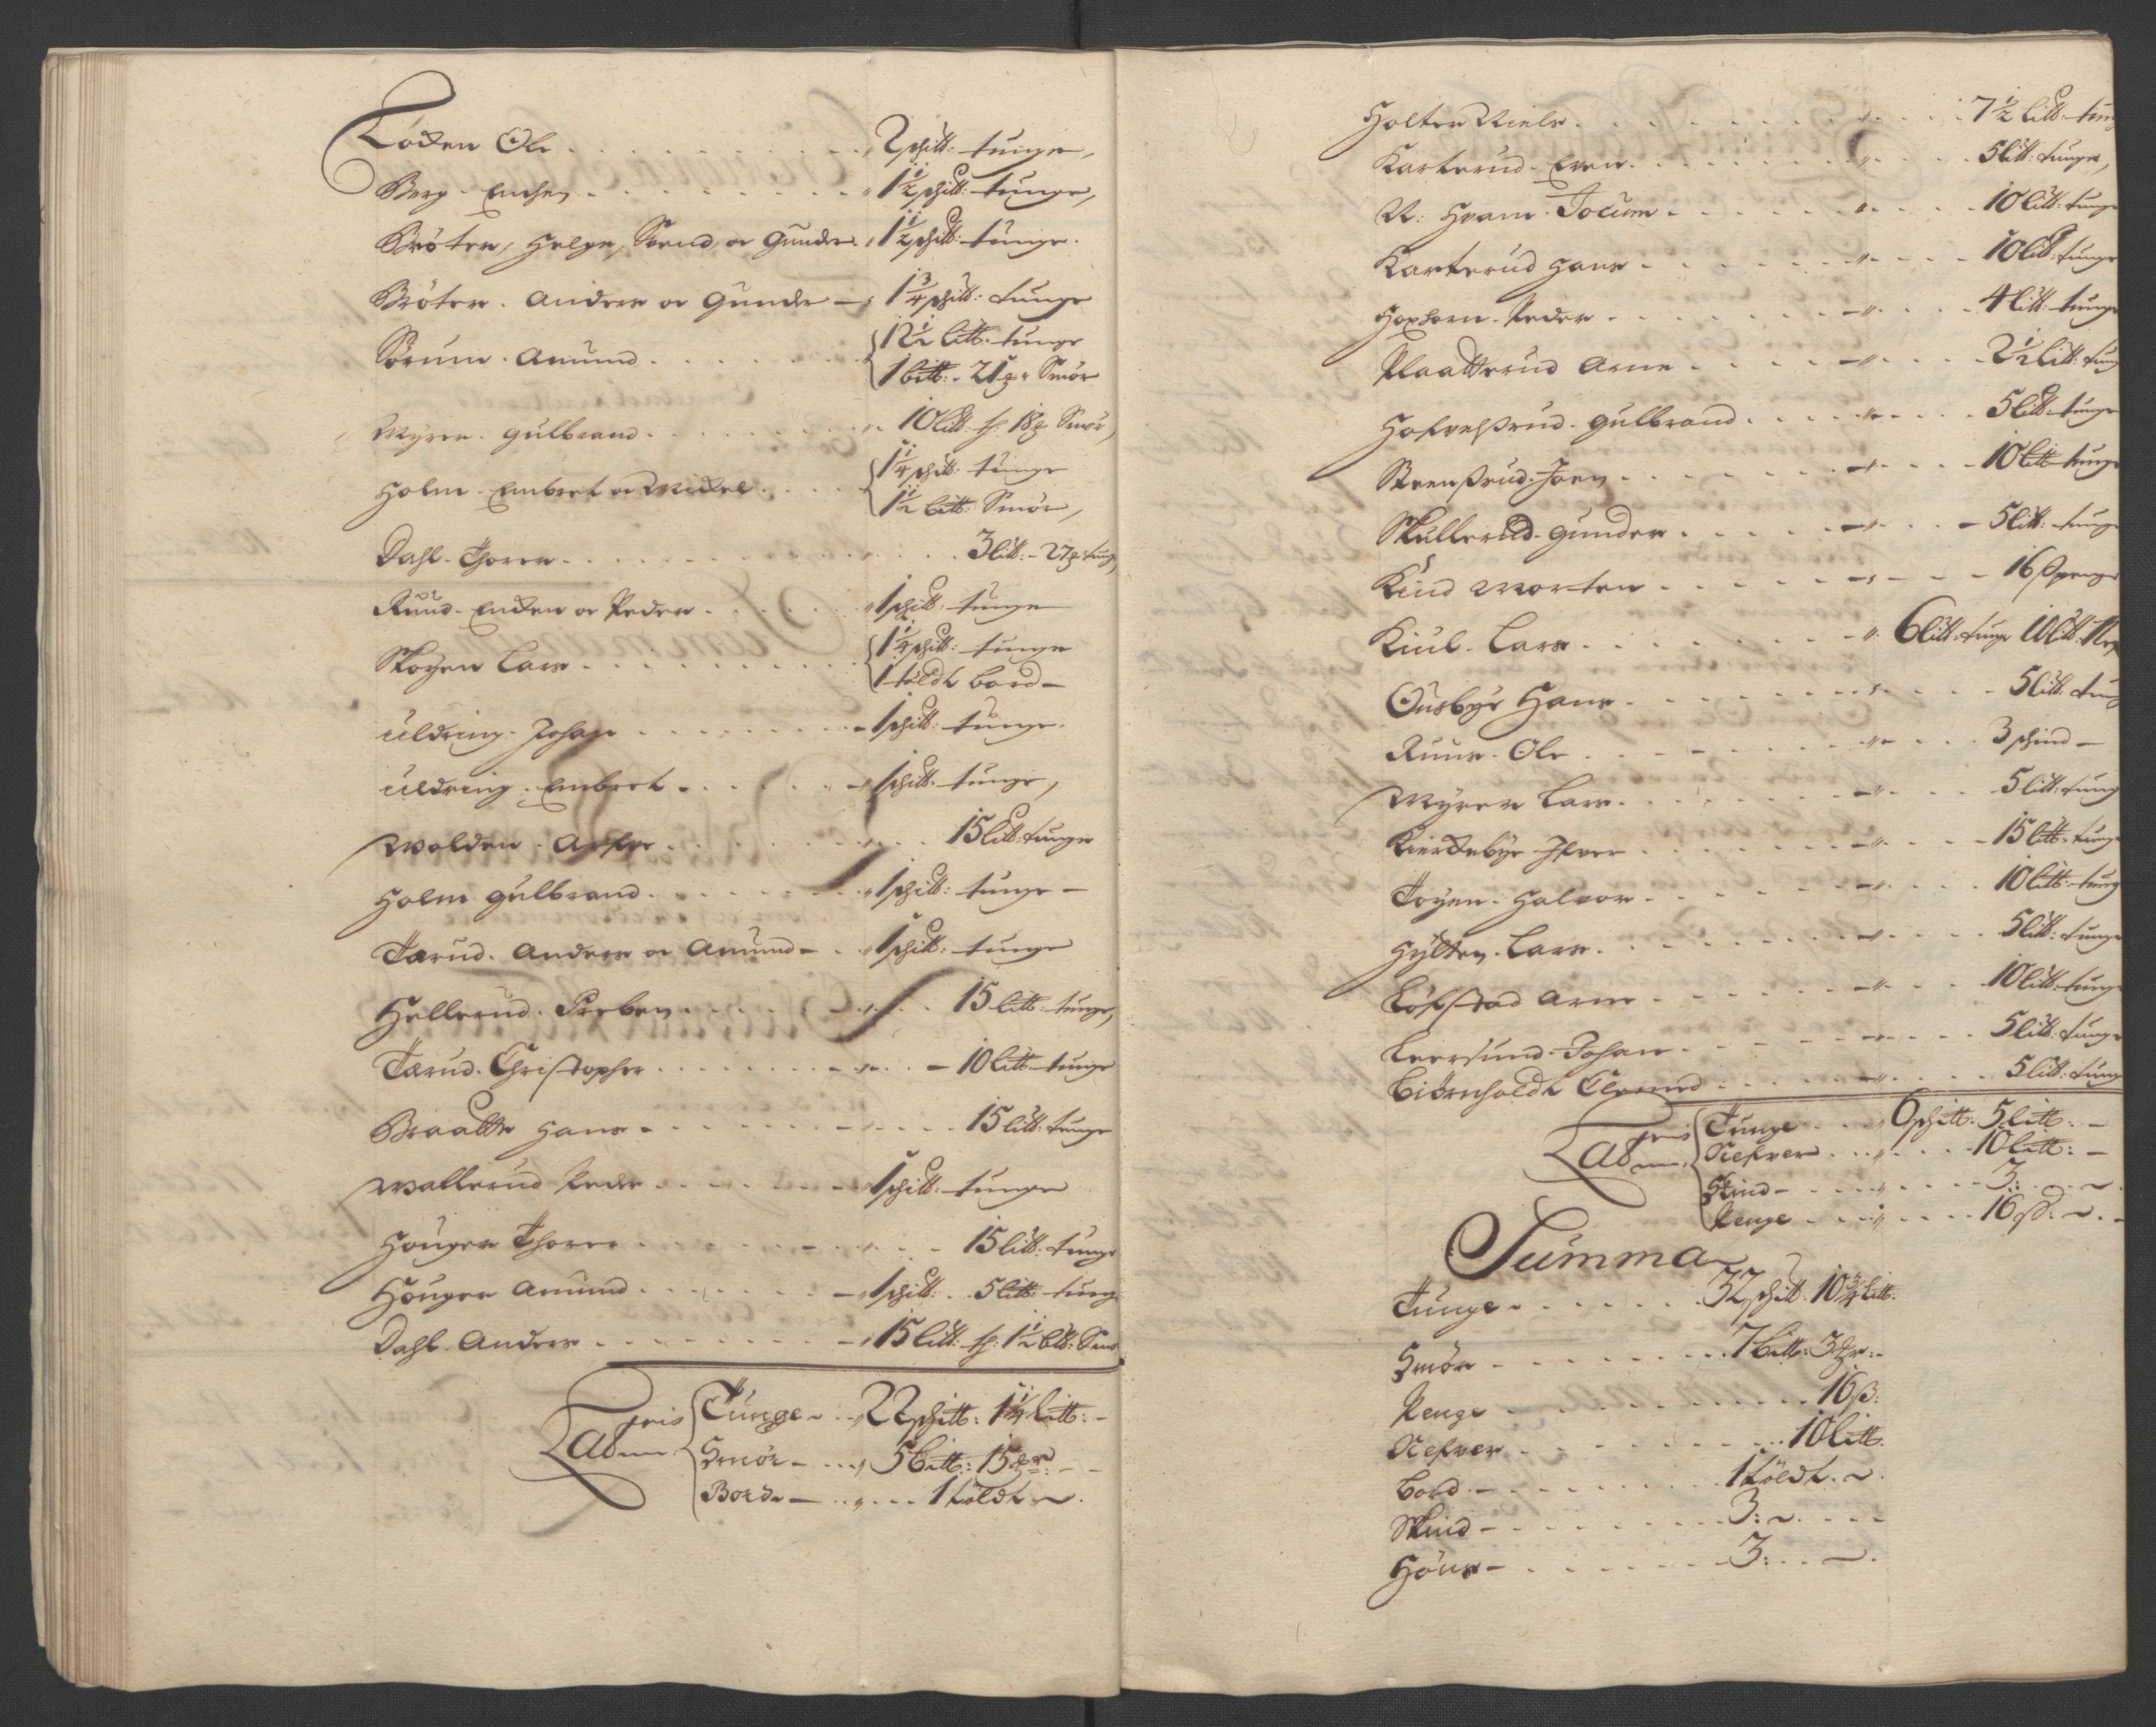 Loken Ole . . . 2 schill: tunge,
Berg. Enchen . . . 1½ schill: tunge,
Bröter, Helge, Svend, oc Gunder. 1½ schill: tunge.
Bröter. Anders oc Gunder — 1¾ schill: tunge
Sörum. Amund . . . 12½ litt: tunge
1 bitt: - 21 g: Smör
Myrer. Gulbrand . . . 10 litt: h: 18 g. Smör,
Holm. Embret oc Mickel . . . 1¼ schill: tunge
1½ bitt: Smör,
Dahl. Thorer . . . 3 litt: - 27 g tunge
Ruud. Encken oc Peder . . . 1 schill: tunge
Skoyen Lars . . . 1¼ schill: tunge
1 töldt bord —
Uldring. Johan . . . 1 schill: tunge.
Uldring. Embret . . . 1 schill: tunge,
Wolden. Asfer . . . 15 litt: tunge
Holm Gulbrand . . . 1 schill: tunge —
Tærud. Anders oc Amund — . 1 schill: tunge
Hellerud. Preben . . . 15 litt: tunge,
Tærud. Christopher . . . 10 litt: tunge
Braatte Hans . . . 15 litt: tunge
Wallerud Peder . . . 1 schill: tunge
Houger Thorer . . . 15 litt: tunge
Houger Amund . . . 1 schill: . 5 litt: tunge
Dahl. Anders . . . 15 litt: h: 1½ bitt: Smör
Lateris Tunge . . . 22 schill: 1¼ litt: -
Smör — . . . 5 bitt: 15 gr: - -
Bord — . . . 1 töldt
Holter Niels . . . 7½ litt: tung
Karterud. Even . . . 5 litt: tunge,
N: Hvam. Jocum . . . 10 litt: tunge
Karterud Hans . . . 10 litt: tunge
Hoxhorn. Peder . . . 4 litt: tunge
Plaatterud Arne . . . 2½ litt: tung
Gulbrand . . . 5 litt: tunge
Steensrud. Joen . . . 10 litt: tunge
Skullerud. Gunder . . . 5 litt: tunge
Kind Morten . . . 16 ß penge
Kiul. Lars . . . 6 litt: tunge 10 litt: Nef
Ousbye Hans . . . 5 litt: tung
Ruus. Ole . . . 3 schind —
Myrer Lars . . . 5 litt: tung
Kierkebye Ifver . . . 15 litt: tunge
Toyen. Halvor . . . 10 litt: tung
Hylten. Lars . . . 5 litt: tunge
Löfstad Arne . . . 10 litt: tunge
Leersund. Johan . . . 5 litt: tunge
Biörnholdt Clemed . . . 5 litt: tung
Lateris Tunge . . . 6 schill: 5 litt: —
Nefver . . . 10 litt: —
Skind — . . . 3: . .
Penge . . . 16 ß. . .
Summa
Tunge . . . 32 schill 10¾ litt:
Smör . . . 7 bitt: 3 gr: -
Penge . . . 16 ß:
Nefver . . . 10 litt.
Bord . . . 1 töldt. .
Skind . . . 3: . . .
Höns — . . . 3: . .